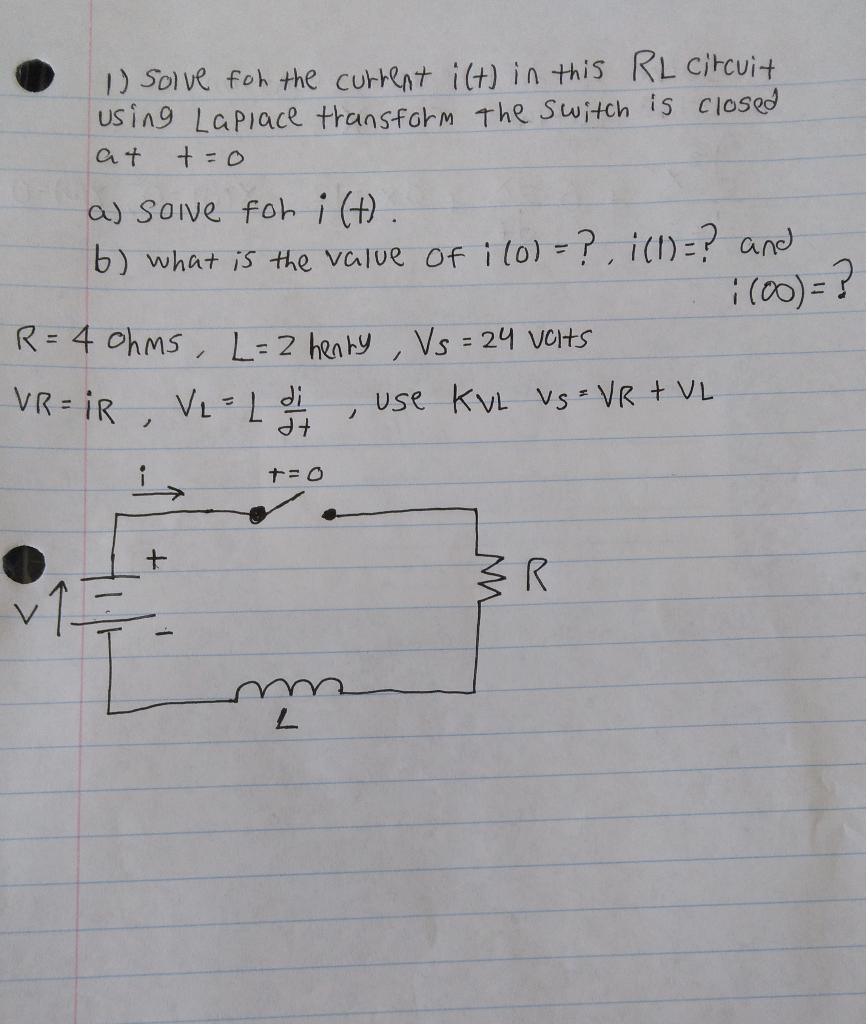 1) Solve for the current i(t) in this RL circuit
using Laplace transform The switch is closed
at t = 0
a) solve for i(t).
b) what is the value of i(0) = ?, i(1) = ? and
i(∞) = ?
R = 4 ohms, L = 2 henry, Vs = 24 volts
VR = iR, VL = L di/dt, use KVL Vs = VR + VL
i t=0
+
R
V
-
L